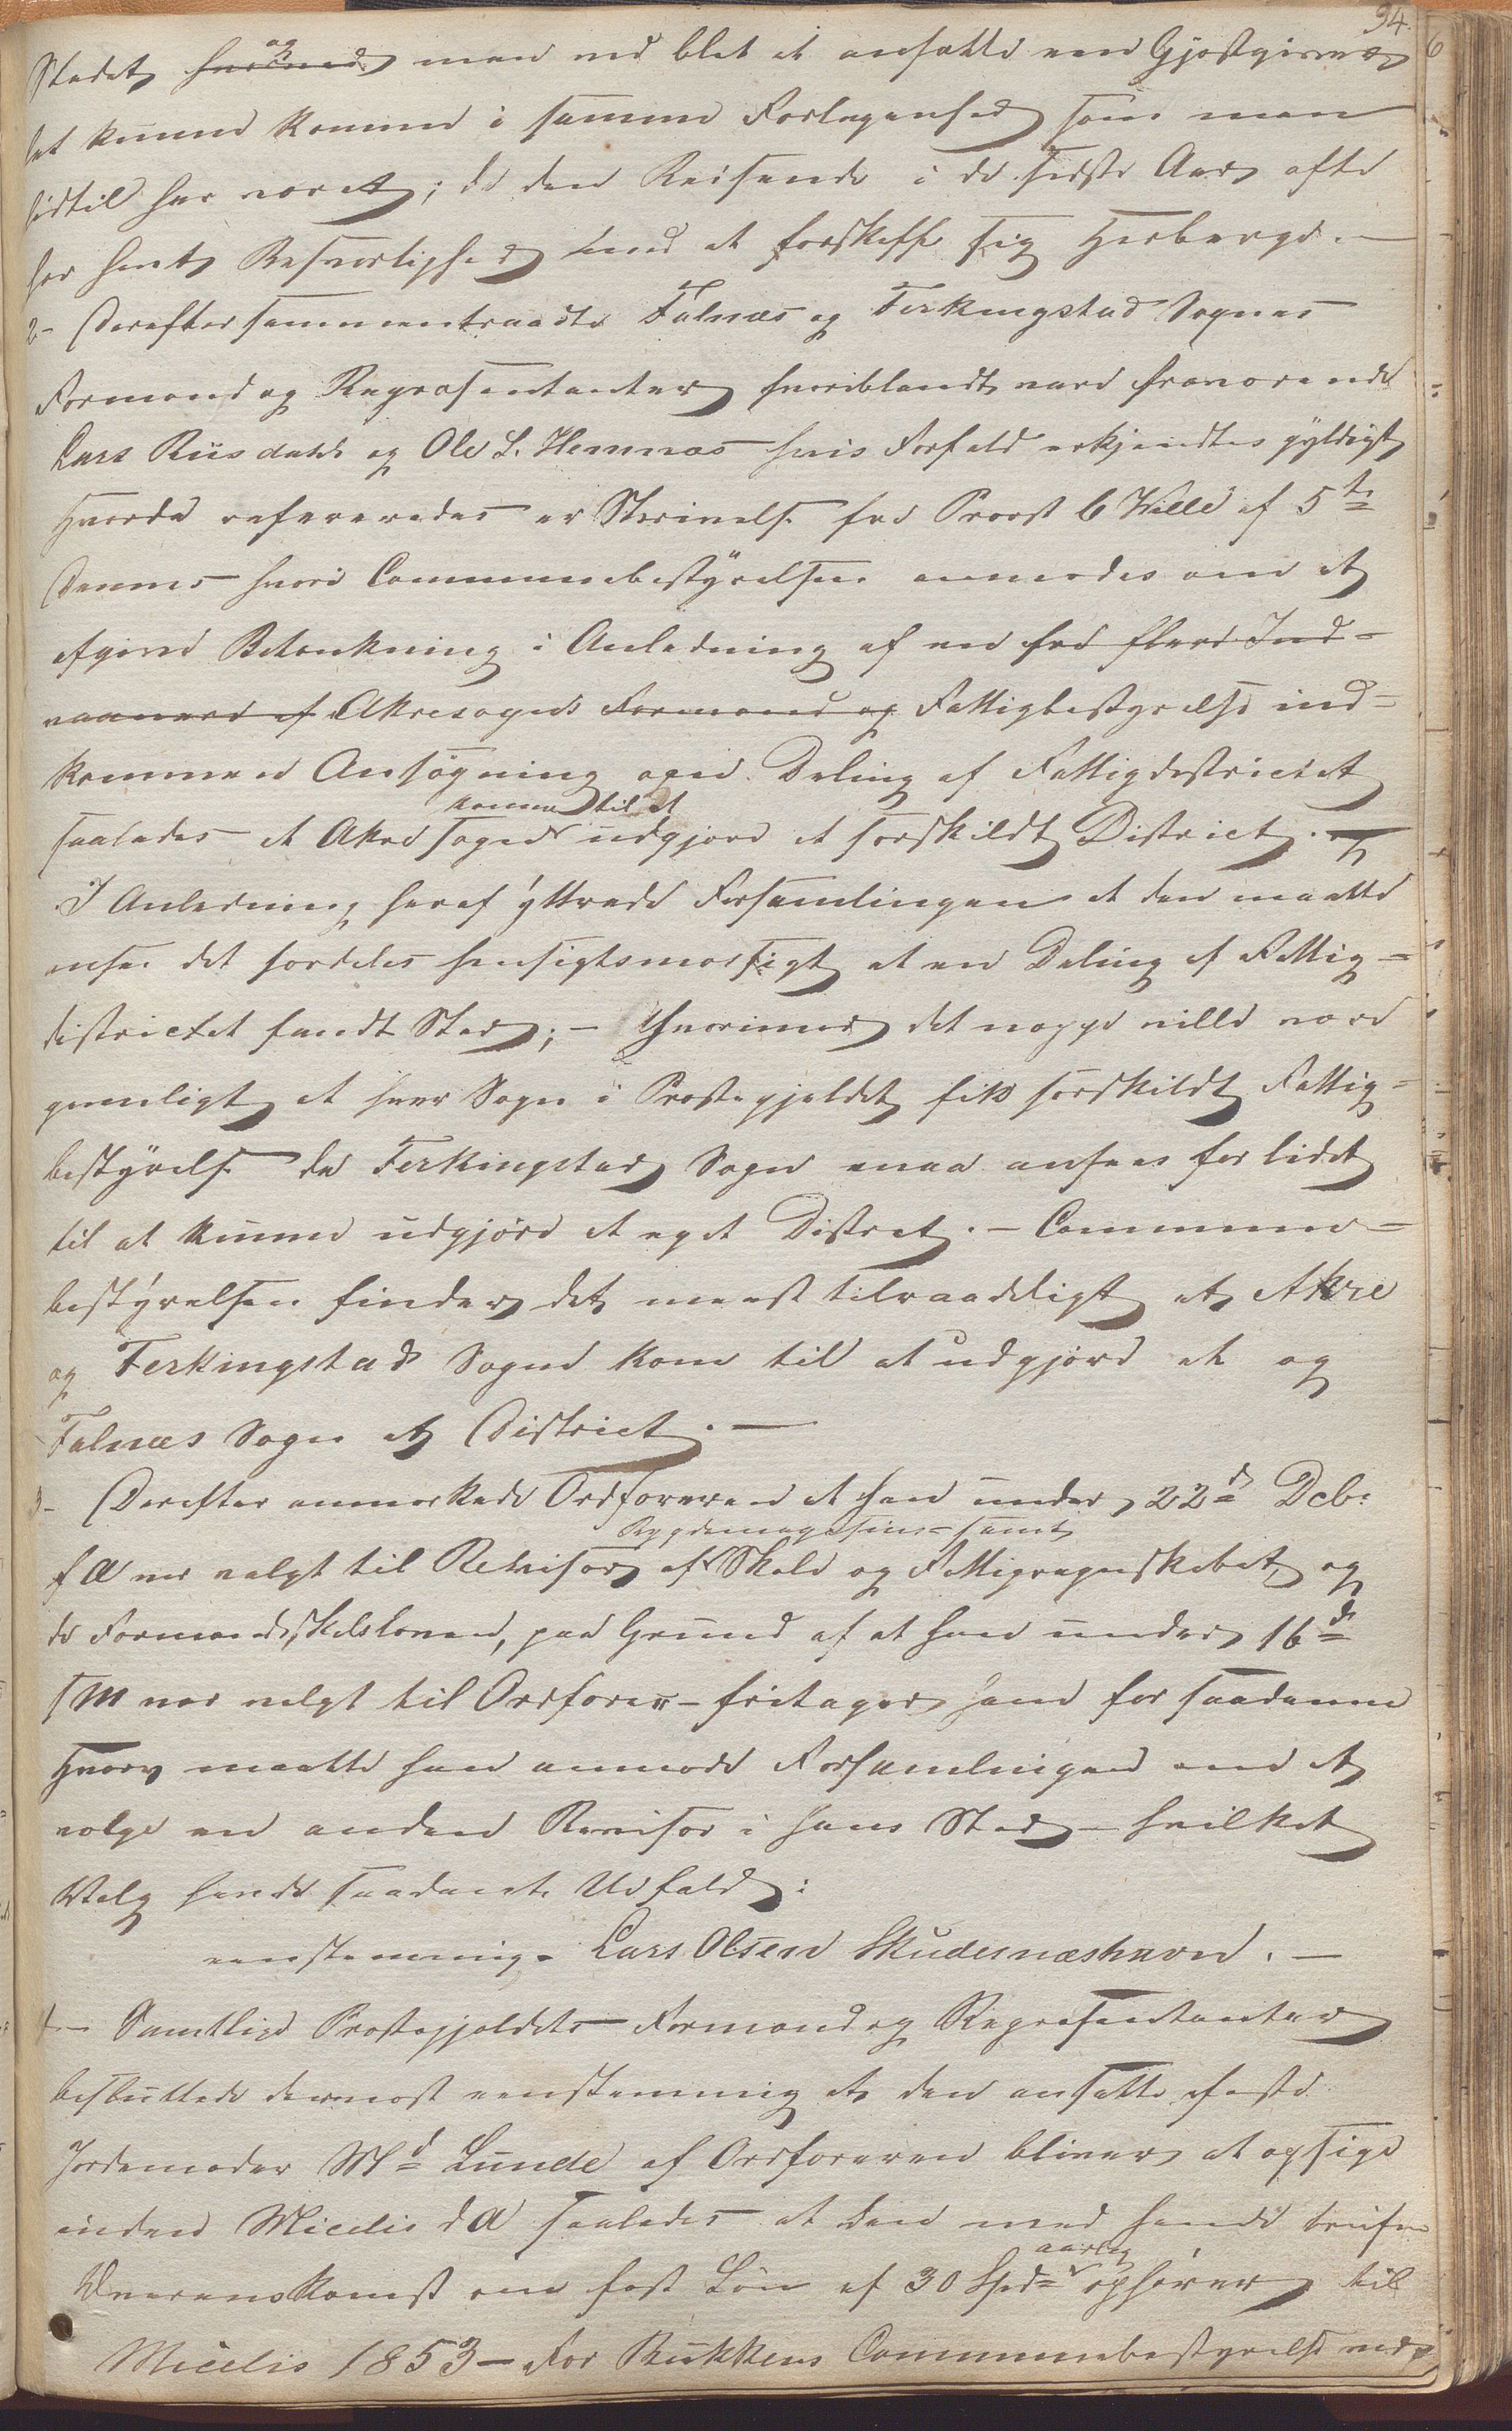 94.
Stedet og man ved blot at ansætte een Gjæstgiver
let kunne komme i samme Forlegenhed som man
hidtil har været; da den Reisende i de sidste Aar ofte
har havt Besværlighed med at forskaffe sig Herberge. —
2- Derefter sammentraadte Falnæs og Ferkingstad Sognes
Formænd og Repræsentanter hvoriblandt vare fraværende
Lars Riisdahl og Ole L. Hemnæs hvis Forfald erkjendtes gyldigt
Hvorda refereredes en Skrivelse fra Provst C Wille af 5te
Dennes hvori Communebestyrelsen anmodes om at
afgive Betænkning i Anledning af en fra flere Ind-
vaanere af Akresogns Formænd og Fattigbestyrelse ind-
kommen Ansøgning om Deling af Fattigdistrictet
komme til at
saaledes at Akre Sogn udgjøre et særskildt District. og
I Anledning heraf yttrede Forsamlingen at den maatte
ansee det særdeles hensigtsmæssigt at en Deling af Fattig-
districtet fandt Sted; — Hvorimod det neppe vilde være
gavnligt at hver Sogn i Præstegjeldet fik særskildt Fattig-
bestyrelse da Ferkingstad Sogn maa ansees for lidet
til at kunne udgjøre et eget Distrct. — Commune-
bestyrelsen finder det meest tilraadeligt at Akre
og Ferkingstads Sogne kom til at udgjøre et og
Falnæs Sogn et District. —
3- Derefter anmærkede Ordføreren at han under 22de Dcb:
Bygdemagasins- samt
f A var valgt til Revisor af Skole og Fattigregnskabet og
da Formandskabsloven, paa Grund af at han under 16de
s M var valgt til Ordfører – fritager ham for saadanne
Hverv maatte han anmode Forsamlingen om at
vælge en anden Revisor i hans Sted – hvilket
Valg havde saadant Udfald:
eenstemmig. Lars Olsen Skudesnæshavn. —
4- Samtlige Præstegjeldets Formænd og Repræsentanter
besluttede dernæst eenstemmig at den ansatte faste
Jordemoder Md Lunde af Ordføreren bliver at opsige
inden Micelis d A saaledes at den med hende trufne
aarlig
Overenskomst om fast Løn af 30 Spd ophører til
Micelis 1853 – For Bukkens Communebestyrelse ved-